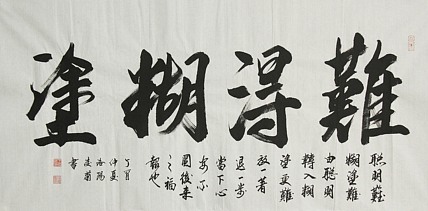 難得糊塗
聰明難
糊塗難
由聰明
轉入糊
塗更難
放一著
退一步
當下心
安
圖後来
之福
報也
丁酉
仲夏
洛陽
書